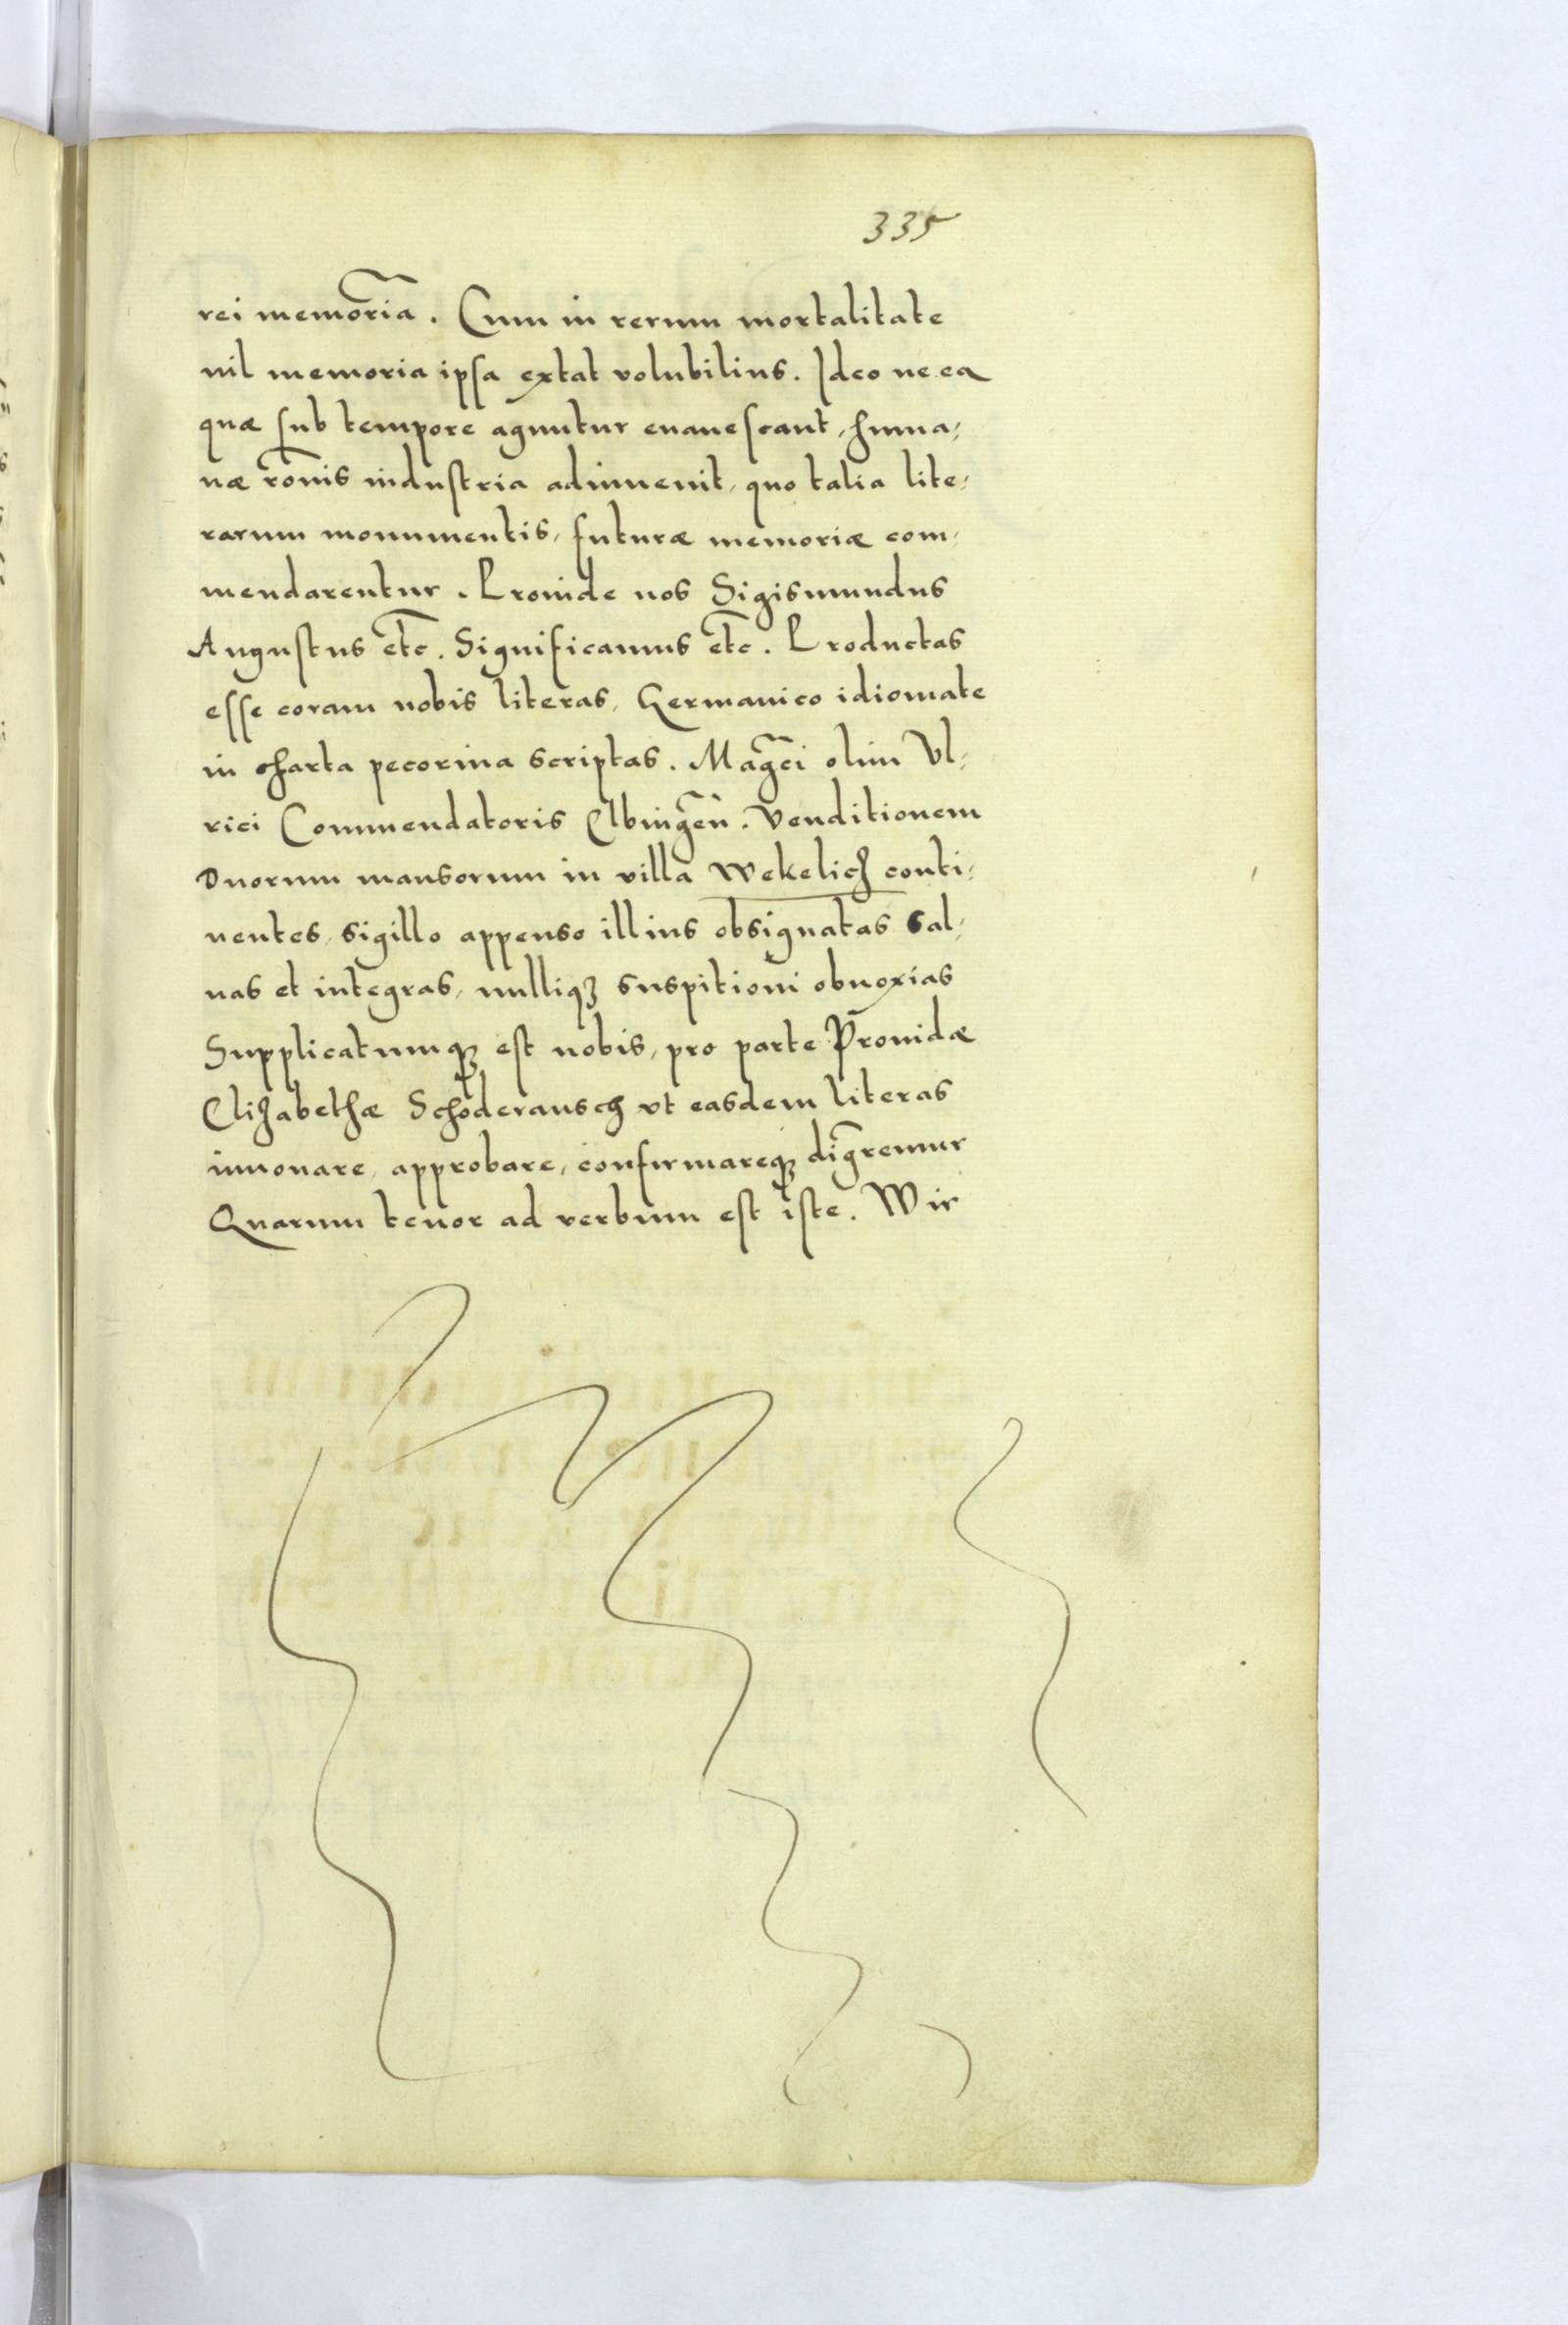 335
rei memoria͂. Cum in rerum mortalitate
nil memoria ipsa extat volubilius. Ideo ne ea
quæ sub tempore aguntur euanescant, huma⸗
næ ro͂nis industria adinuenit, quo talia lite⸗
rarum monumentis, futuræ memoriæ com⸗
mendarentur. Proinde nos Sigismundus
Augustus etc͂. Significamus etc͂. Productas
esse coram nobis literas, Germanico idiomate
in charta pecorina scriptas. Mag͂ci olim Vl⸗
rici Commendatoris Elbingen͂. Venditionem
Duorum mansorum in villa Wekelich conti⸗
nentes, sigillo appenso illius obsignatas sal⸗
uas et integras, nulliqꝫ suspitioni obnoxias
Supplicatumqꝫ est nobis, pro parte Prouidæ
Elizabethæ Schoderausch vt easdem literas
innouare, approbare, confirmareqꝫ dig͂remur
Quarum tenor ad verbum est iste. Wir